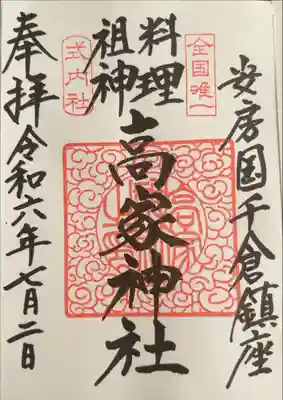 安房国千倉鎮座
全国唯一
料理
祖神
式内社
高家神社
奉拝
令和六年七月二日